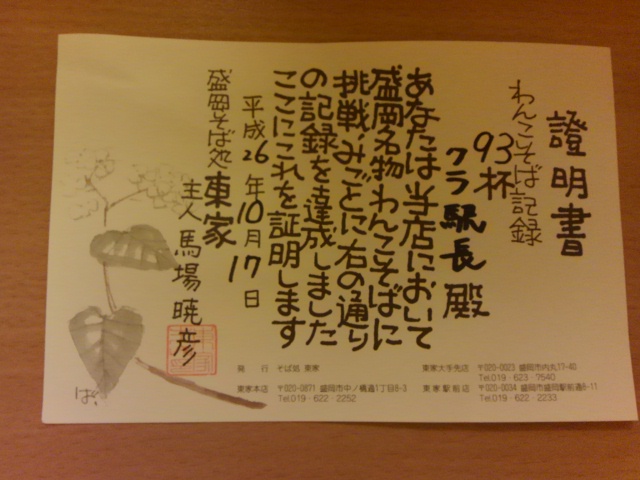 證明書
わんこそば記録
93杯
クラ駅長殿
あなたは当店において
盛岡名物わんこそばに
挑戦みごとに右の通り
の記録を達成しました
ここにこれを証明します
平成26年10月17日
盛岡そば処 東家
主人 馬場暁彦
発行 そば処 東家
東家本店 〒020-0871 盛岡市中ノ橋通1丁目8-3
Tel.019・622・2252
東家大手先店 〒020-0023 盛岡市内丸17-40
Tel.019・623・7540
東家駅前店 〒020-0034 盛岡市盛岡駅前通8-11
Tel.019・622・2233